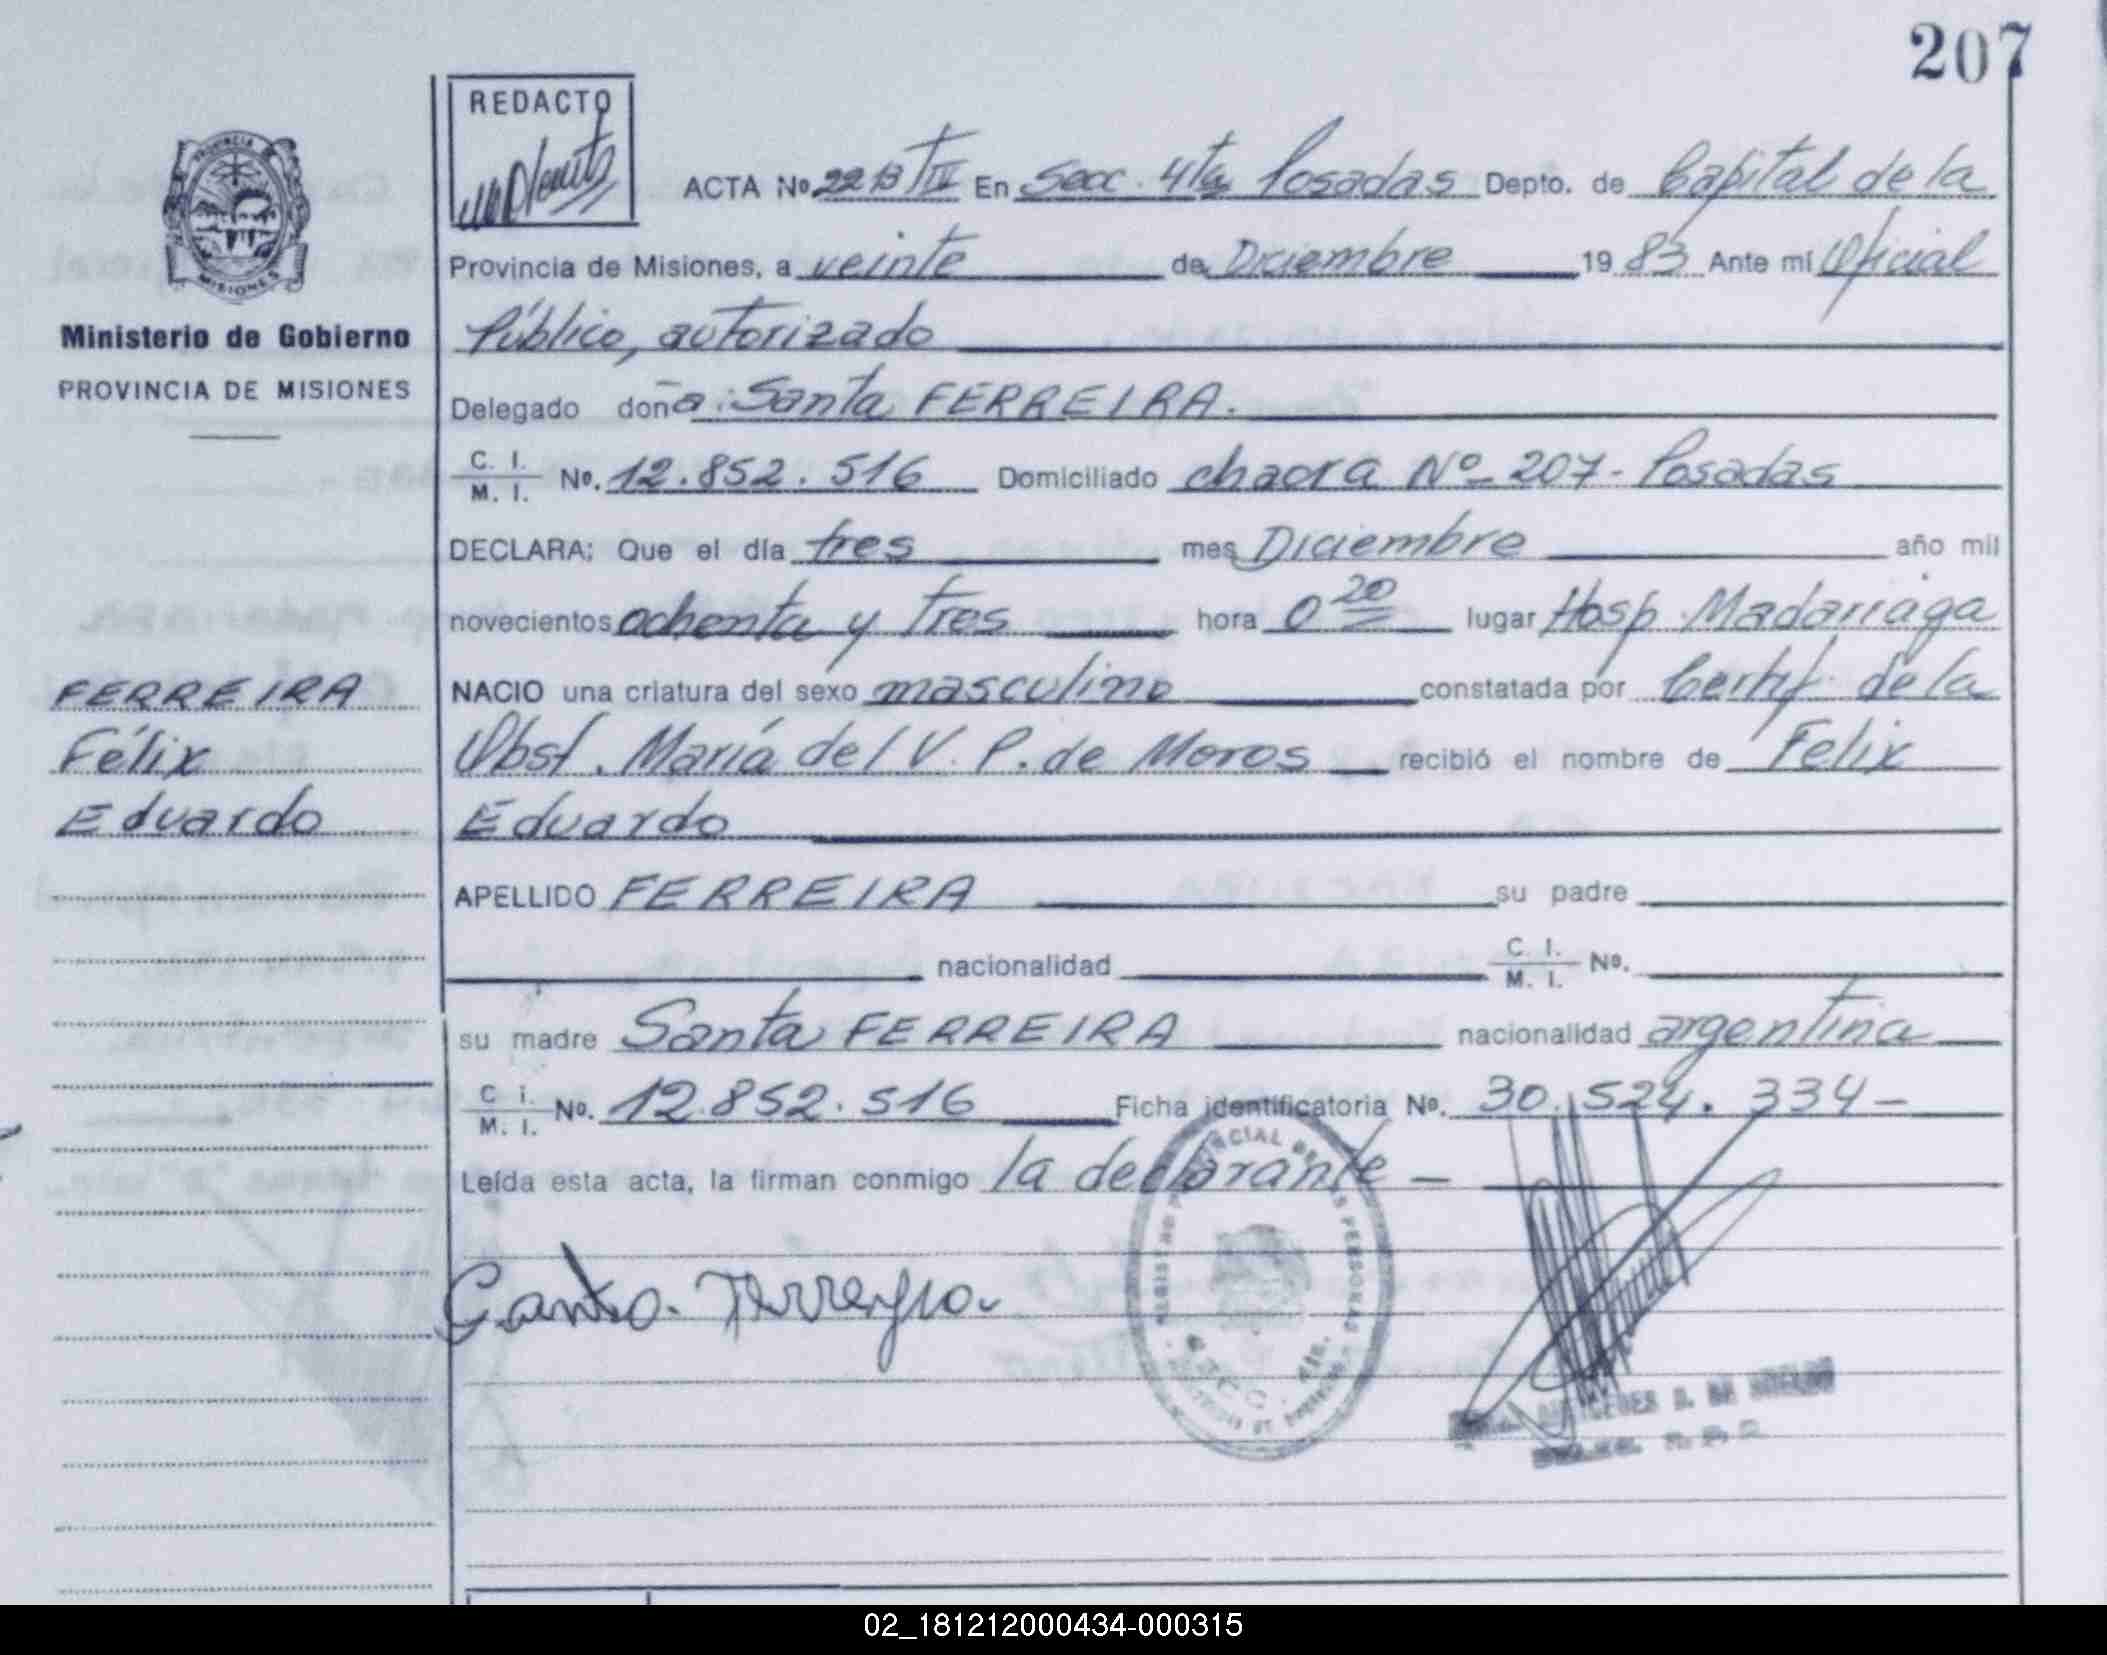 207
REDACTO
PROVINCIA DE
MISIONES
Ministerio de Gobierno
PROVINCIA DE MISIONES
ACTA No 2213 TIII En Secc. 4ta Posadas Depto. de Capital de la
Provincia de Misiones, a veinte de Diciembre 19 83 Ante mí Oficial
Público, autorizado
Delegado doña: Santa FERREIRA.
C. I. / M. I. No. 12.852.516 Domiciliado chacra Nº 207- Posadas
DECLARA: Que el día tres mes Diciembre año mil
novecientos ochenta y tres hora 0 20 lugar Hosp. Madariaga
NACIO una criatura del sexo masculino constatada por Certif. de la
Obst. María del V. P. de Moros recibió el nombre de Felix
Eduardo
FERREIRA
Félix
Eduardo
APELLIDO FERREIRA su padre
nacionalidad C. I. / M. I. No.
su madre Santa FERREIRA nacionalidad argentina
C. I. / M. I. No. 12.852.516 Ficha identificatoria No. 30.524.334-
Leída esta acta, la firman conmigo la declarante -
Santa Ferreyra.
02_181212000434-000315